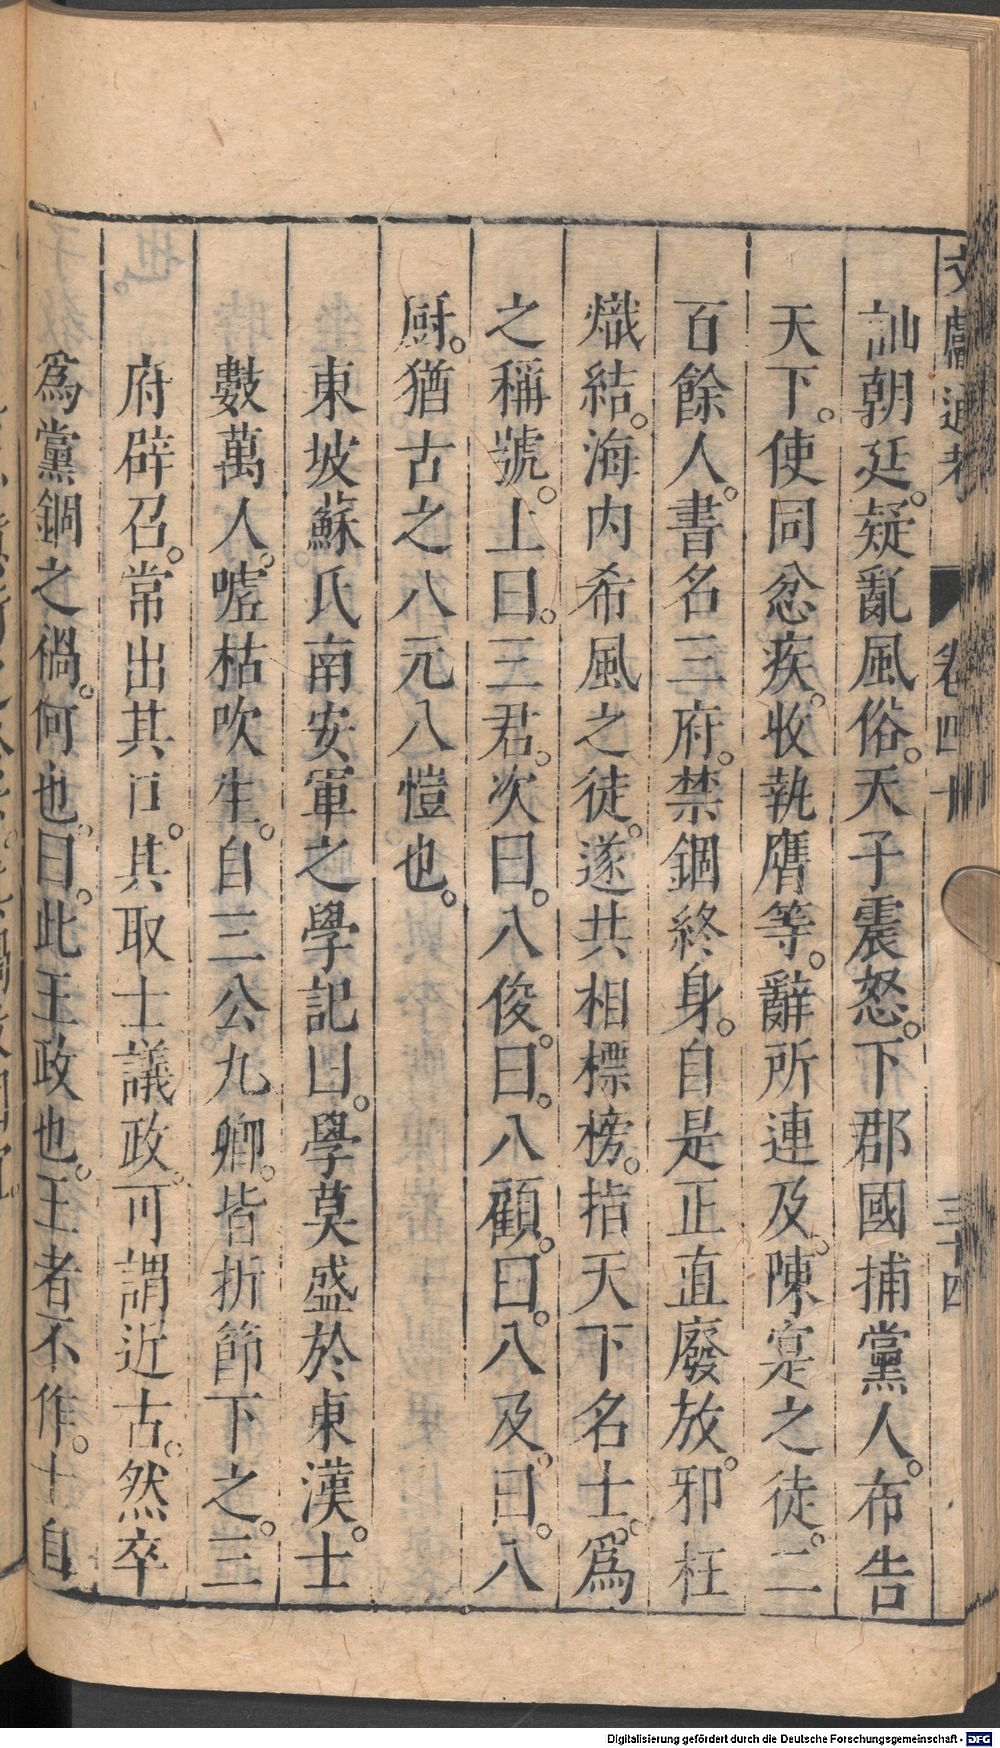 文獻通考 卷四十 三十四
訕朝廷。疑亂風俗。天子震怒。下郡國捕黨人。布告
天下。使同忿疾。收執膺等。辭所連及。陳寔之徒。二
百餘人。書名三府。禁錮終身。自是正直廢放。邪枉
熾結。海内希風之徒。遂共相標榜。指天下名士。爲
之稱號。上曰。三君。次曰。八俊。曰。八顧。曰。八及。曰。八
厨。猶古之八元八愷也。
東坡蘇氏南安軍之學記曰。學莫盛於東漢。士
數萬人。噓枯吹生。自三公九卿。皆折節下之。三
府辟召。常出其口。其取士議政。可謂近古。然卒
爲黨錮之禍。何也。曰。此王政也。王者不作。士自
Digitalisierung gefördert durch die Deutsche Forschungsgemeinschaft - DFG